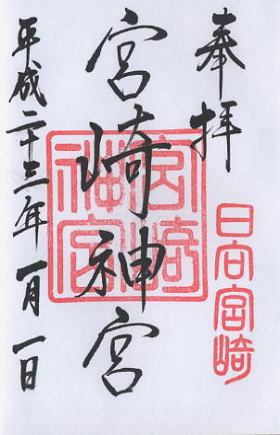 奉拝
日向宮崎
宮崎神宮
宮崎神宮
平成二十三年一月一日